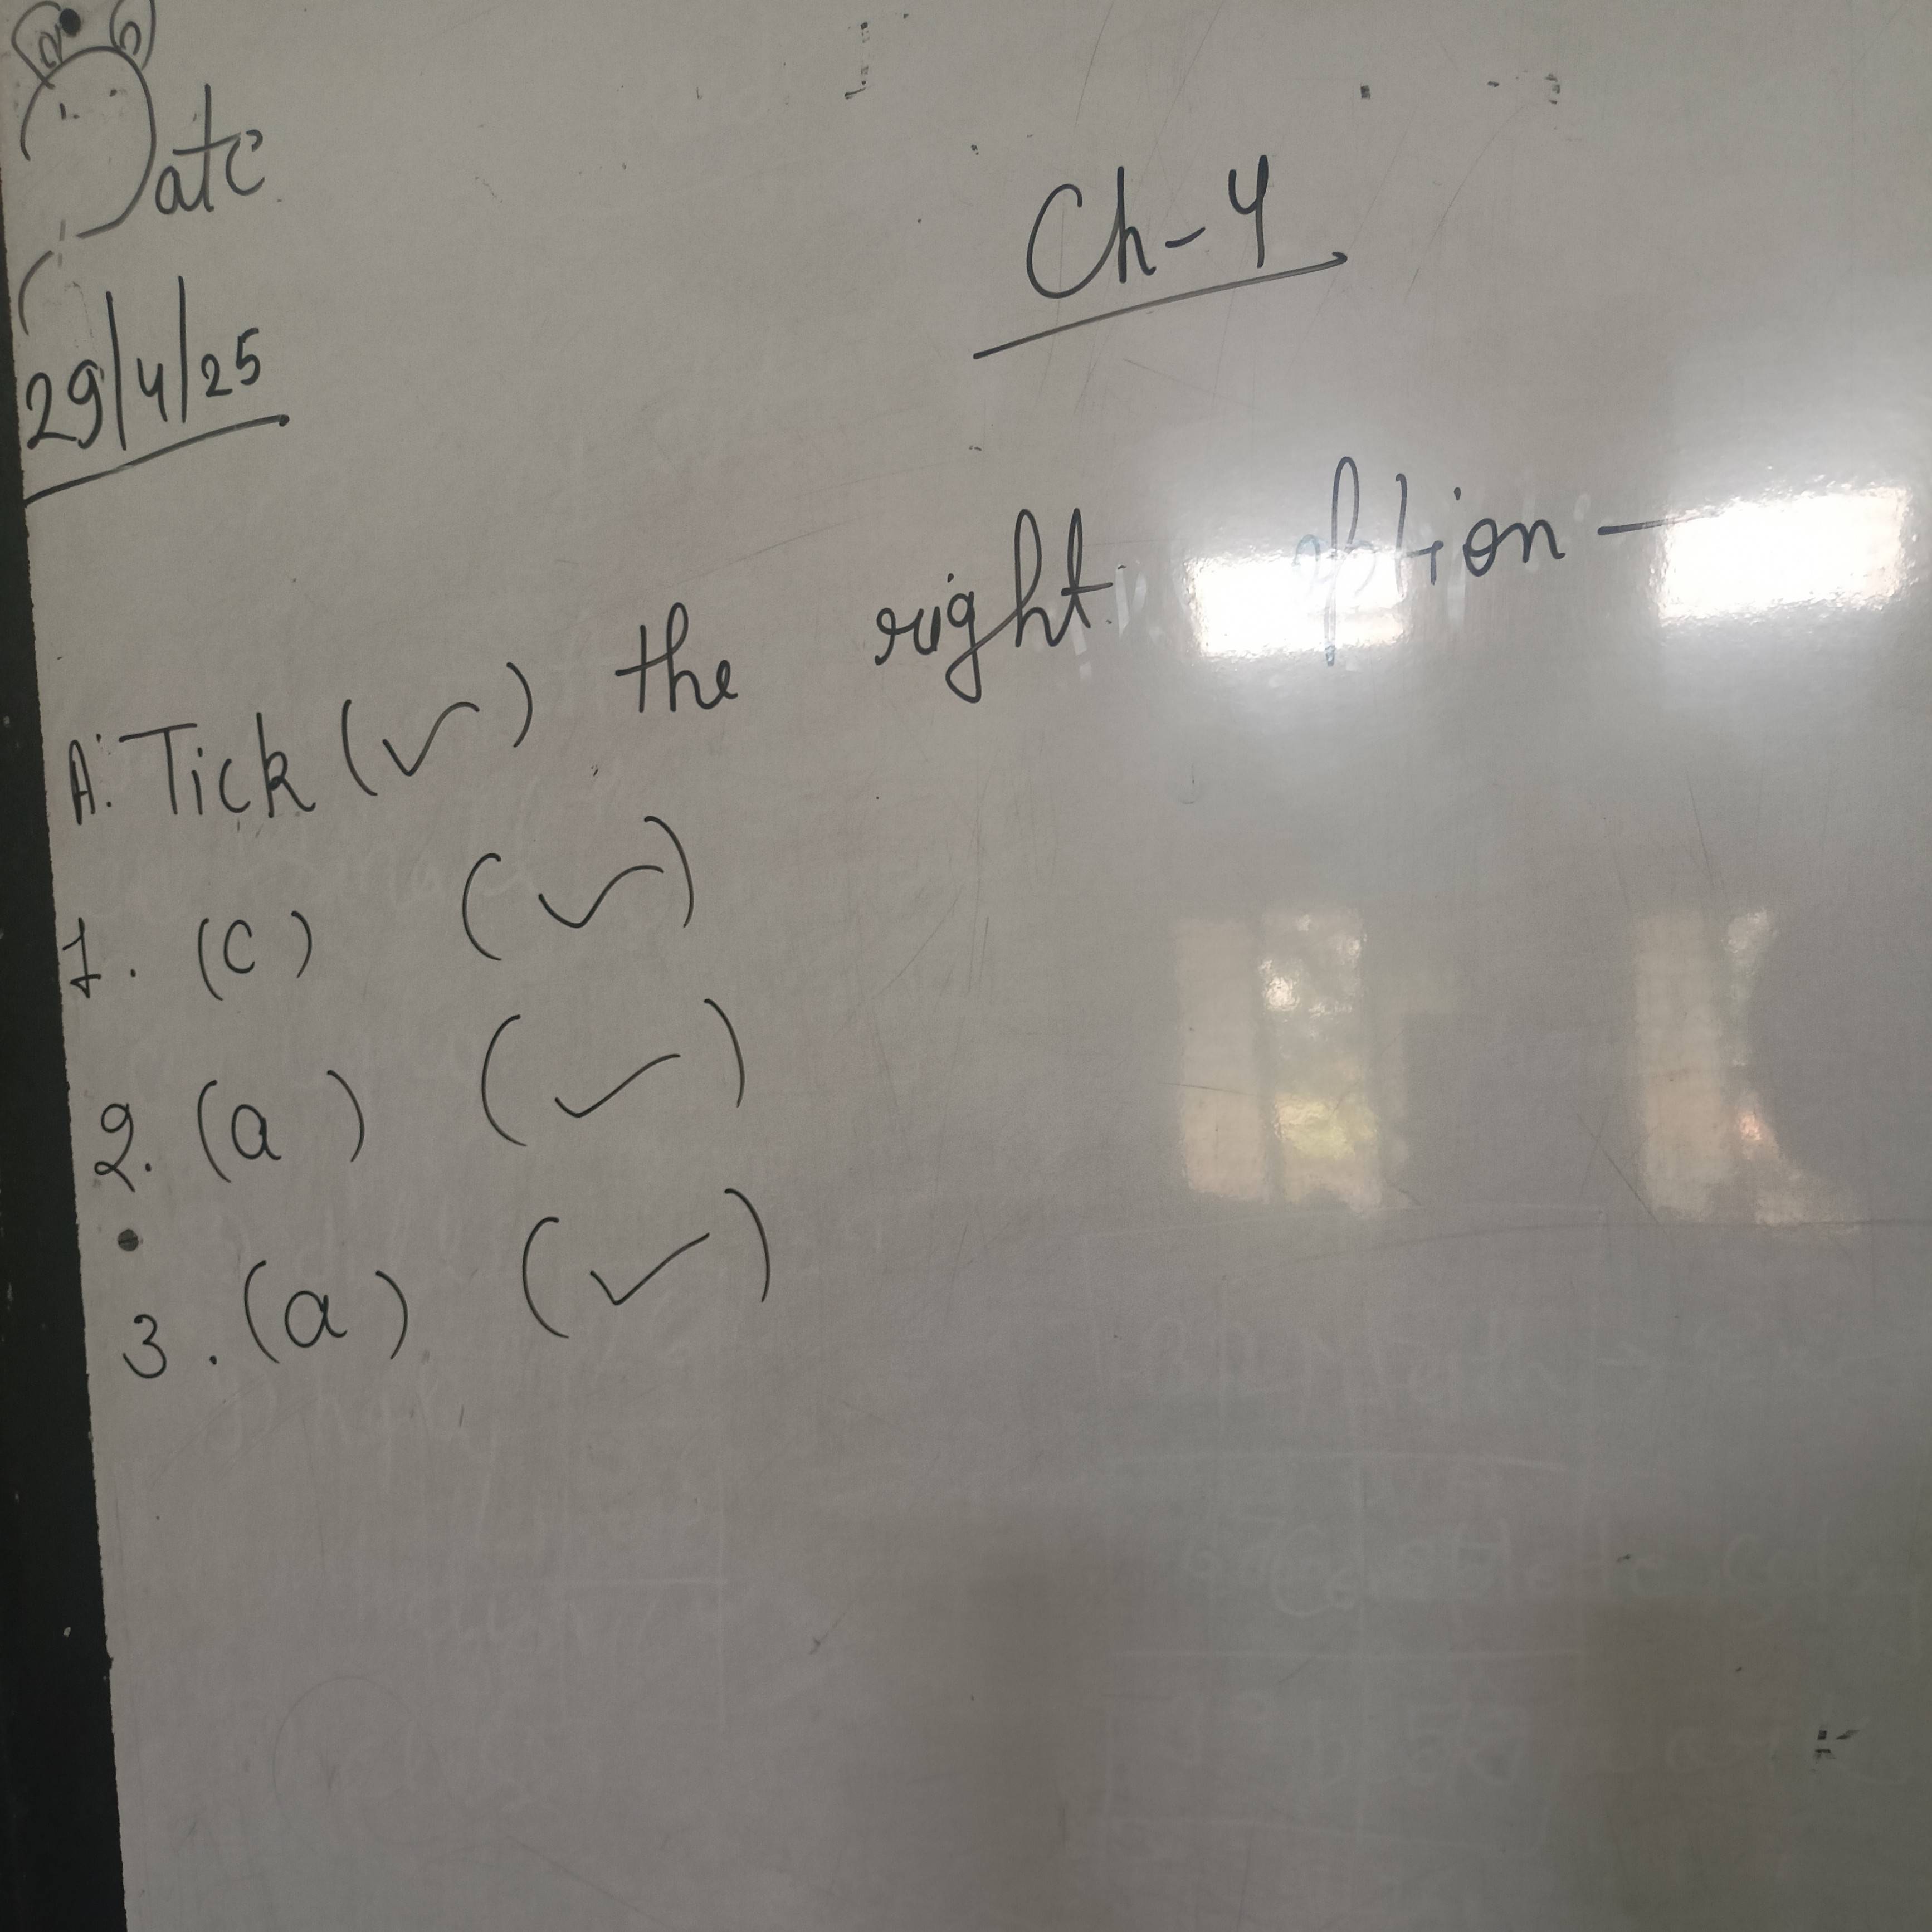 Date
Ch-4
29/4/25
A. Tick (✓) the right option —
1. (c) (✓)
2. (a) (✓)
3. (a) (✓)